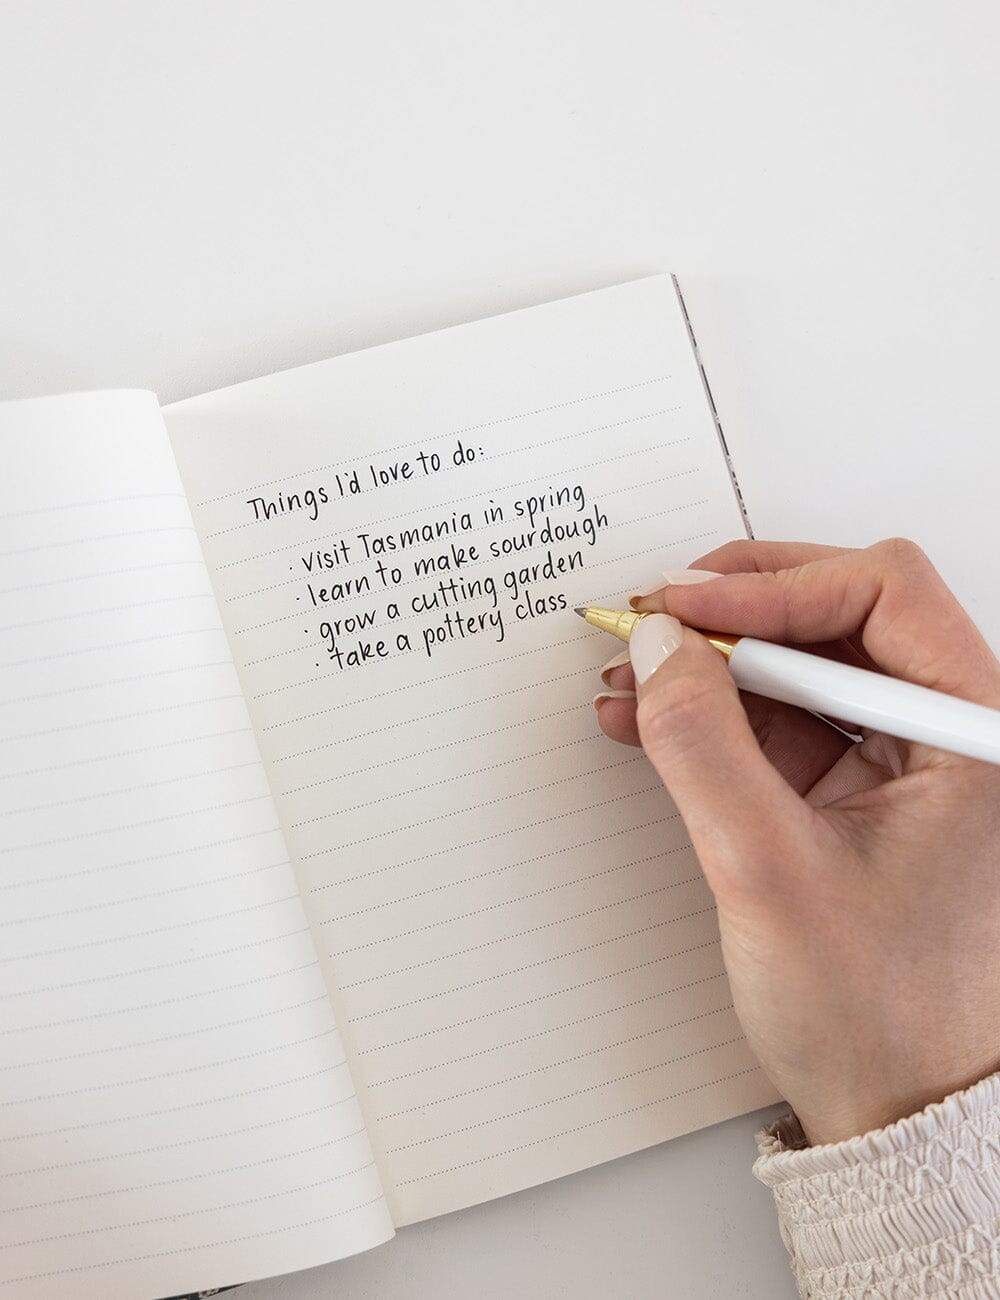 Things I'd love to do:
· visit Tasmania in spring
· learn to make sourdough
· grow a cutting garden
· take a pottery class